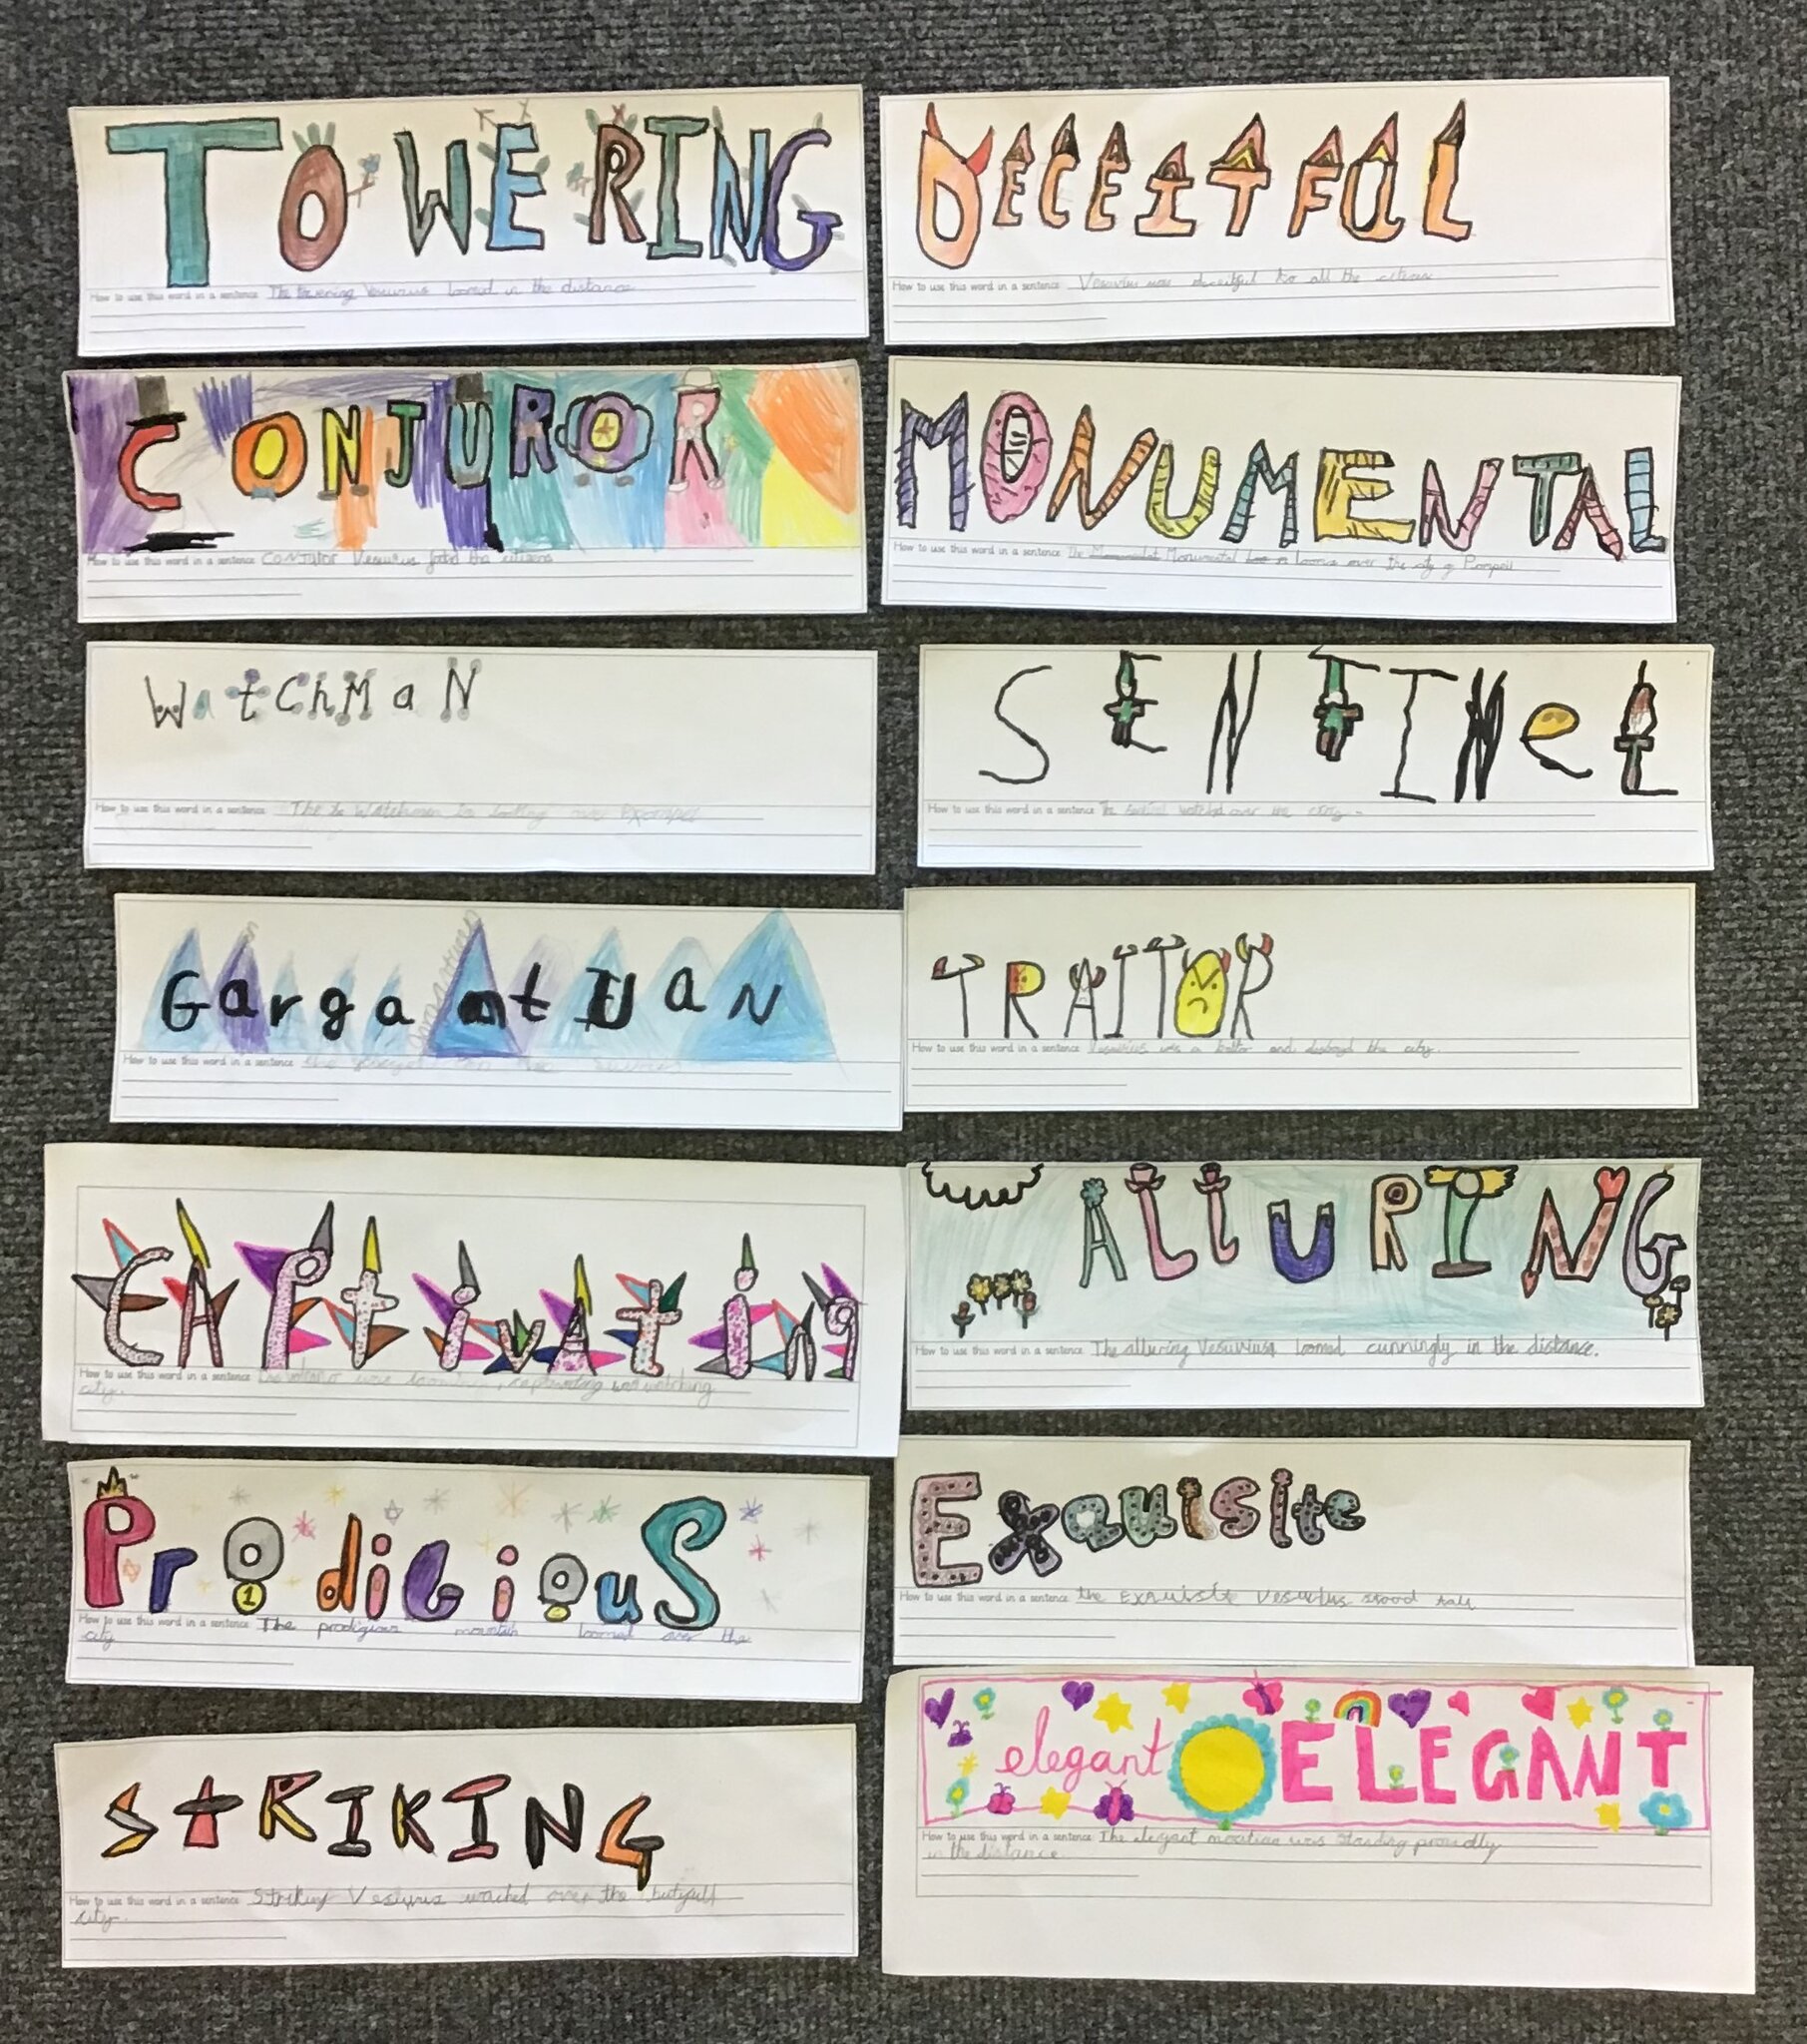 TOWERING
How to use this word in a sentence The towering Vesuvius loomed in the distance
DECEITFUL
How to use this word in a sentence Vesuvius was deceitful to all the
CONJUROR
How to use this word in a sentence CONJUROR Vesuvius the citizens
MONUMENTAL
How to use this word in a sentence The Monumental looms over the city of Pompeii
WatChMaN
How to use this word in a sentence The Watchman is looking over
SENTINel
How to use this word in a sentence The sentinel watched over the
GargantUaN
How to use this word in a sentence
TRAITOR
How to use this word in a sentence Vesuvius was a and the city.
CAPtivAting
How to use this word in a sentence The was captivating watching
city.
ALLURING
How to use this word in a sentence The alluring Vesuvius loomed cunningly in the distance.
ProdiGiouS
How to use this word in a sentence The prodigious mountain loomed over the
city
Exquisite
How to use this word in a sentence the Exquisite Vesuvius stood tall
StRIKING
How to use this word in a sentence Striking Vesuvius over the
city.
elegant ELEGANT
How to use this word in a sentence The elegant was standing proudly
in the distance.